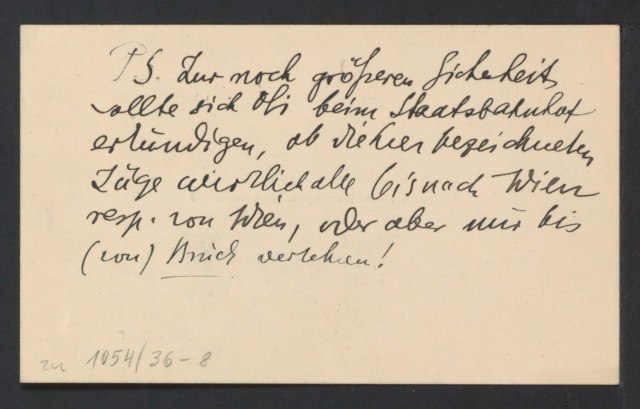 PS. Zur noch größeren Sicherheit
sollte sich Osi beim Staatsbahnhof
erkundigen, ob die hier bezeichneten
Züge wirklich alle bis nach Wien
resp. von Wien, oder aber nur bis
(von) Bruck verkehren!
zu 1054/36-8